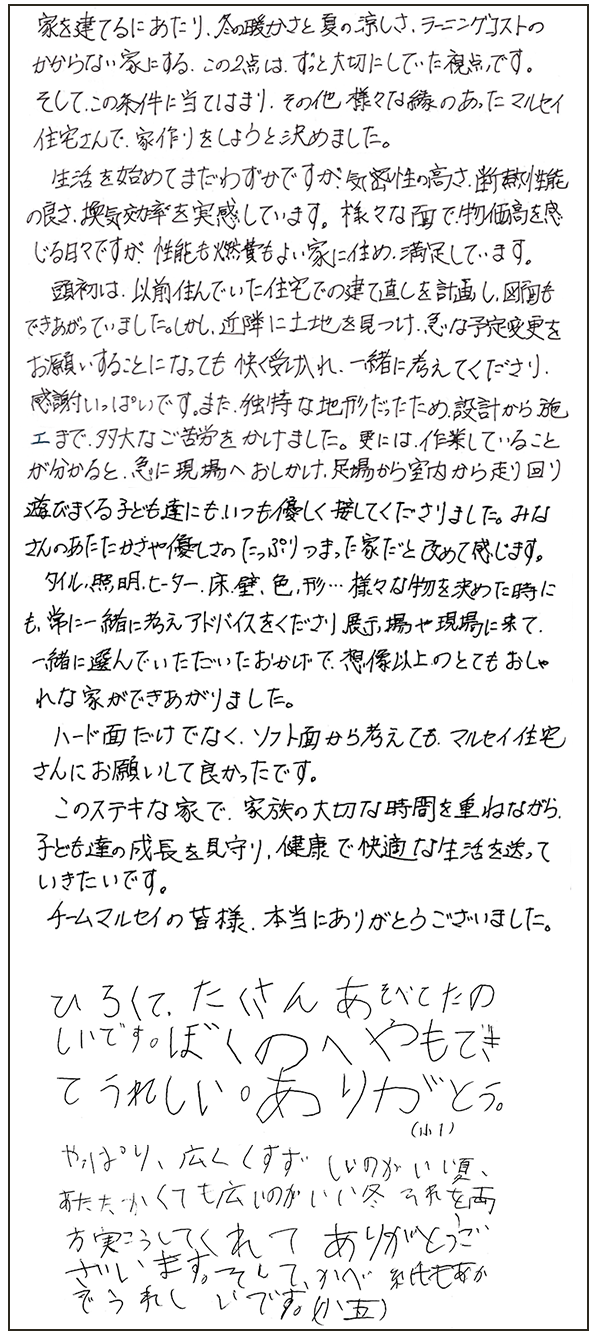 家を建てるにあたり、冬の暖かさと夏の涼しさ、ラーニングコストの
かからない家にする、この2点は、ずっと大切にしていた視点です。
そして、この条件に当てはまり、その他様々な縁のあったマルセイ
住宅さんで、家作りをしようと決めました。
生活を始めてまだわずかですが、気密性の高さ、断熱性能
の良さ、換気効率を実感しています。様々な面で、物価高を感
じる日々ですが、性能も燃費もよい家に住め、満足しています。
頭初は、以前住んでいた住宅での建て直しを計画し、図面も
できあがっていました。しかし、近隣に土地を見つけ、急な予定変更を
お願いすることになっても快く受け入れ、一緒に考えてくださり、
感謝いっぱいです。また、独特な地形だったため、設計から施
工まで、多大なご苦労をかけました。更には、作業していること
が分かると、急に現場へおしかけ、足場から室内から走り回り
遊びまくる子ども達にも、いつも優しく接してくださりました。みな
さんのあたたかさや優しさのたっぷりつまった家だと改めて感じます。
タイル、照明、ヒーター、床、壁、色、形…様々な物を決めた時に
も、常に一緒に考えアドバイスをくださり、展示場や現場に来て、
一緒に選んでいただいたおかげで、想像以上のとてもおしゃ
れな家ができあがりました。
ハード面だけでなく、ソフト面から考えても、マルセイ住宅
さんにお願いして良かったです。
このステキな家で、家族の大切な時間を重ねながら、
子ども達の成長を見守り、健康で快適な生活を送って
いきたいです。
チームマルセイの皆様、本当にありがとうございました。
ひろくて、たくさんあそべてたの
しいです。ぼくのへやもでき
てうれしい。ありがとう。
(小1)
やっぱり、広くくすずしいのがいい夏、
あたたかくても広いのがいい冬それを両
方実こうしてくれてありがとうご
ざいます。そして、かべ紙もあか
でうれしいです。(小五)